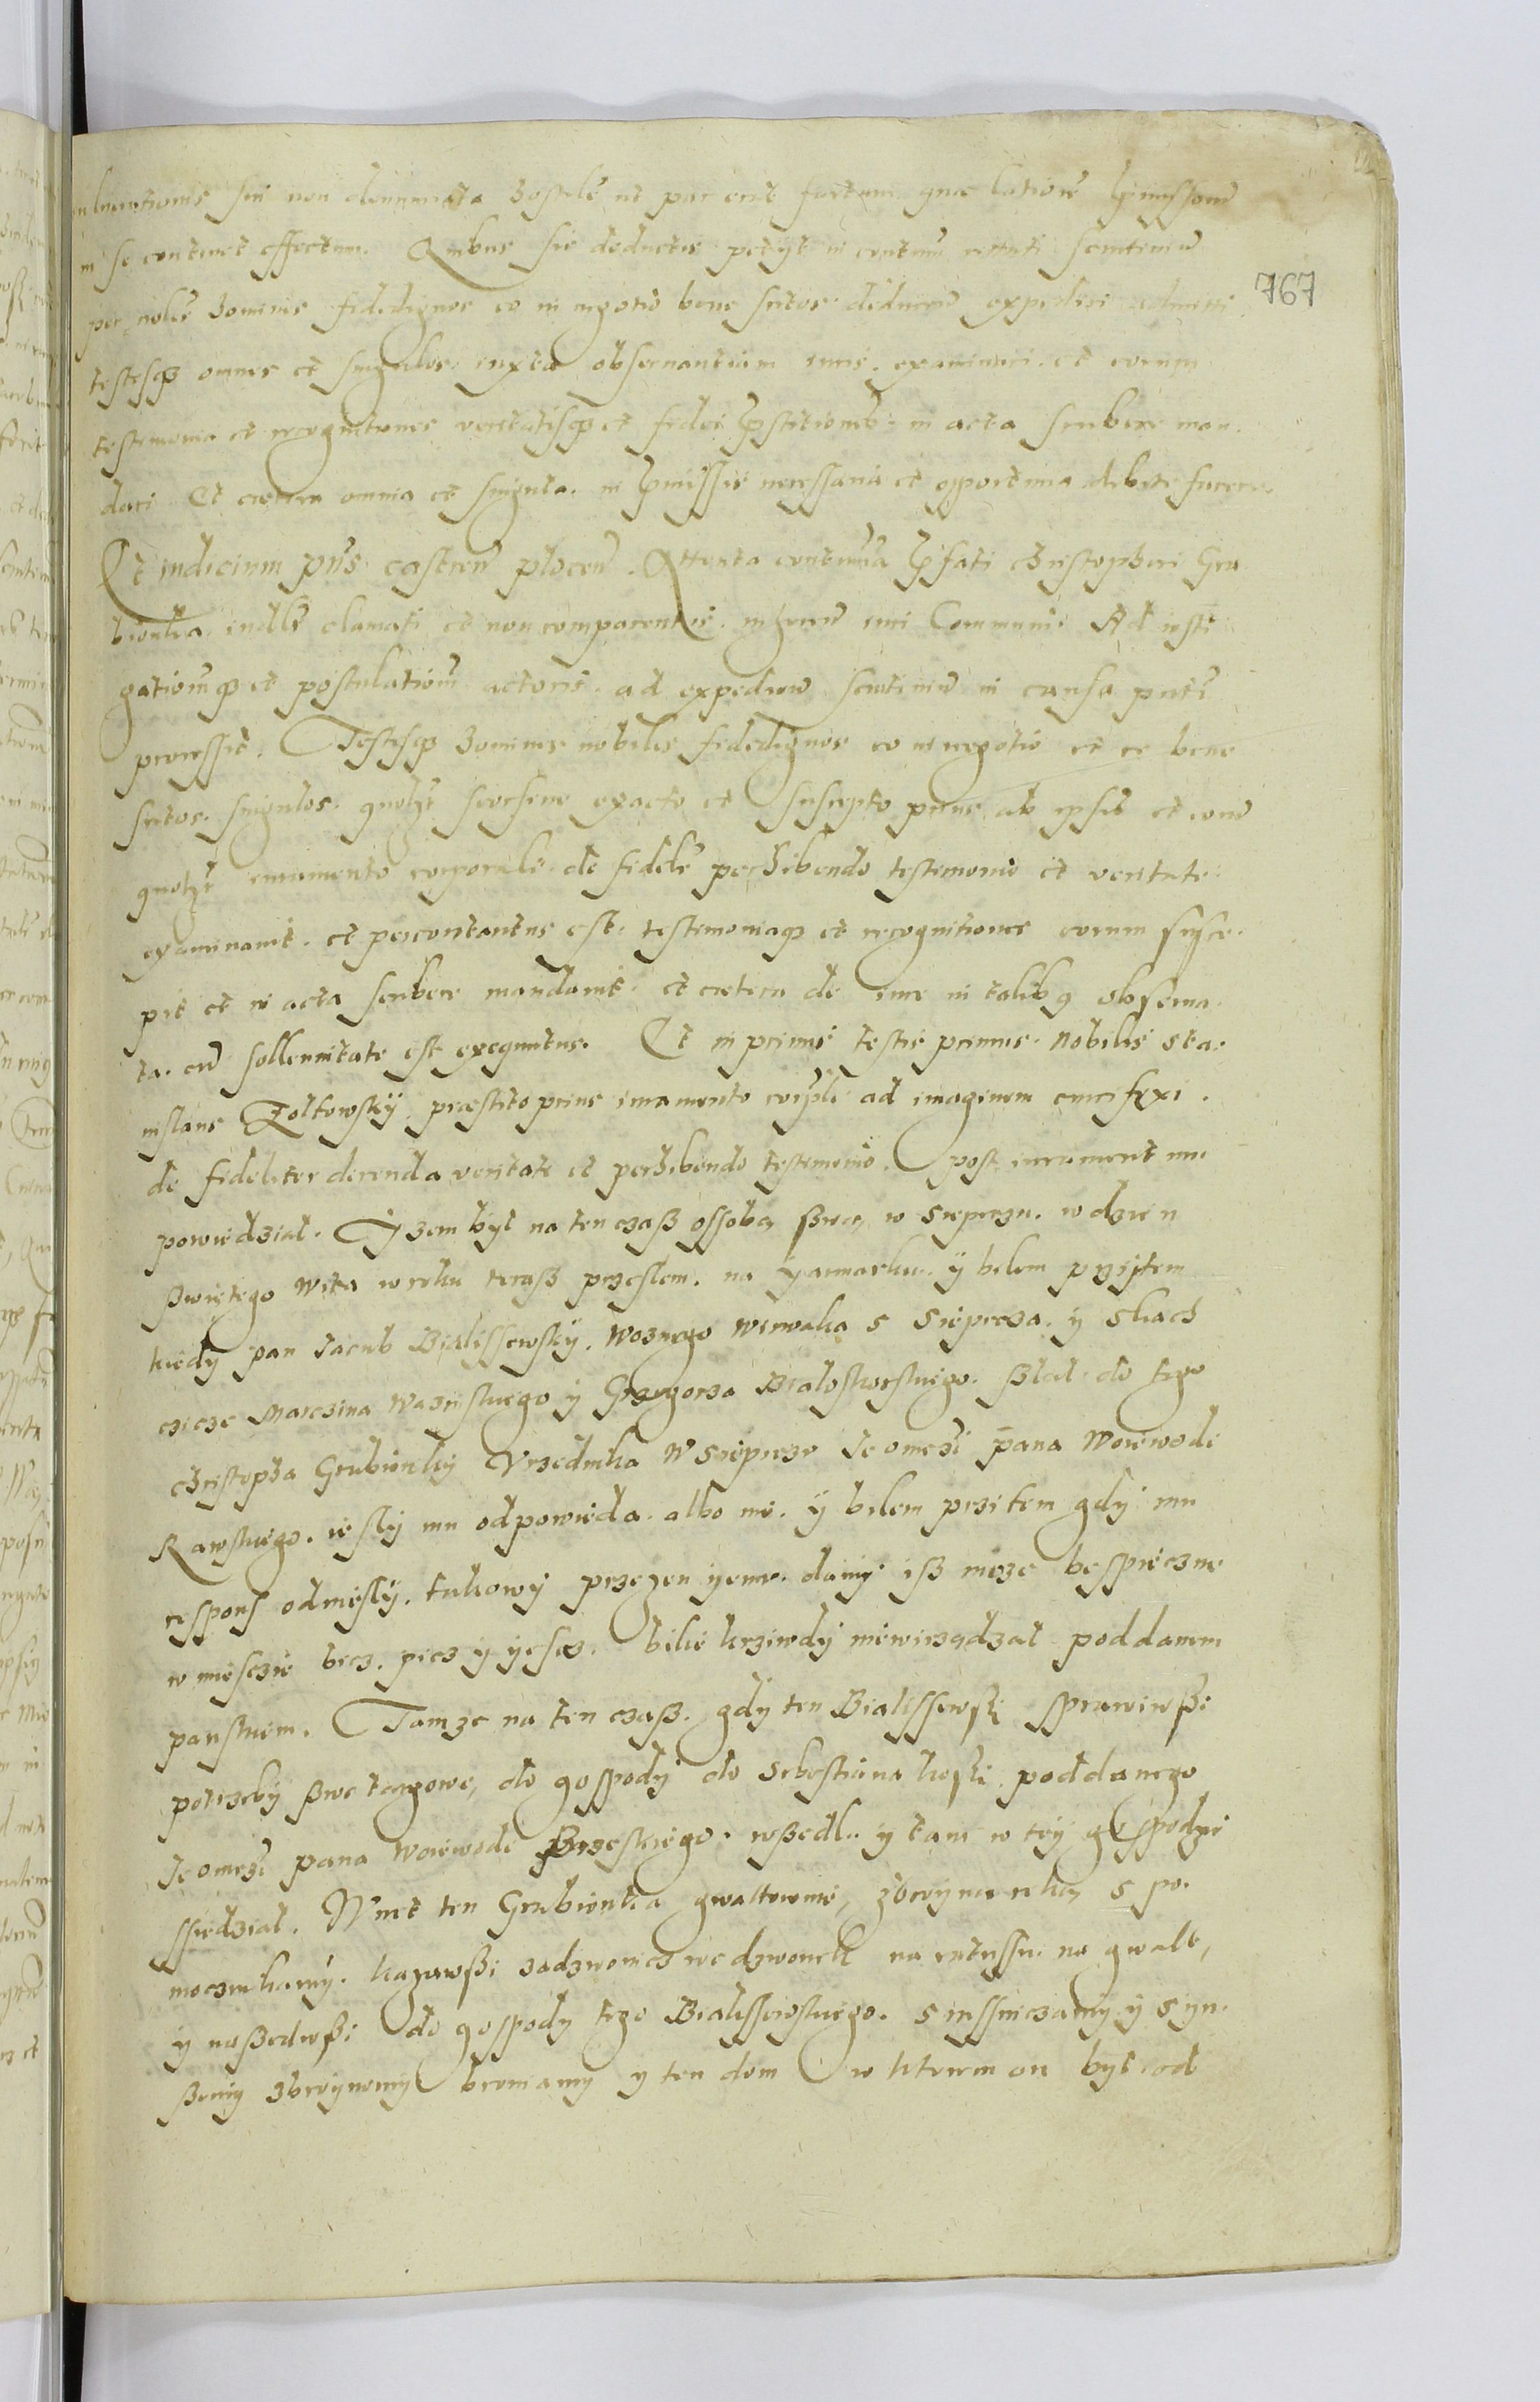 767
sui non denunciata hostile ut par erit factum quae latione
in se continet effectum. Quibus sic deductis petyt in contum scrutinium
per homines fidedignos eo in negotio bene scitos deducendum expediri admitti
testesque omnes et singulos iuxta observantiam iuris examinari et eorum
testimonia et recognitiones veritatisque et fidei in acta scribere man
dari Et caetera omnia et singula in praemissis necessaria et opportuna debite facere
Et iudicium pns castren plocen. Attenta contumacia pfati christopheri Gru
bionka clamati et non comparentis iuri Communi Ad insti
gationemque et postulationem actoris ad expediendum scrutinium in causa
processit. Testesque homines nobiles fidedignos eo in negotio et re bene
scitos singulos seorsive exacto et suscepto prius ab ipsis et eorum
iuramento corporali de fideli perhibendo testimonio et veritate
examinavit. et percontantus est. testimoniaque et recognitiones eorum susce.
pit et in acta scribere mandavit. et caetera de iure in talibus observa.
ta. cum sollennitate est exequutus. Et in primis testis primus. Nobilis Sta.
nislaus Zoltowsky. praestito prius iuramento corpli ad imaginem crucifixi.
de fideliter dicenda veritate et perhibendo testimonio. post iuramentum
powiedzial. Yzem byl na ten czaß ossobą ßwą w Sieprczu. w dzien
ßwiętego Wita w roku teraß przeslem. na yarmarku. y bilem przitem
kiedy pan Jacub Bialissewsky. Woznego Wiewalka s Sieprcza. y slach
czicze Marczina y Grzegorza Bialoskorskiego. ßlal do tego
christopha Grubionky Urzednika W Sieprczu Jeomczi pana Woiewodi
Rawskiego. iesly mu odpowieda. albo nie. y bilem przitem gdy mu
respons odniesly. takowy przezen yemu. dany iß moze bespieczne
w miesczie bicz. picz y yescz. bile krziwdy niewirządzal poddanem
panskiem. Tamze na ten czaß. gdy ten Bialissewsky sprawiwßi
potrzeby ßwe targowe, do gospody do Sebestiana koski poddanego
Jeomczi pana woiewodi Brzeskiego. wßedl. y tam w tey gospodzie
ssiedzial. Wnet ten Grubionka gwaltownie, zbroyna ręką s po.
mocznikamy. kazawßi zadzwonicz we dzwonek na ratussu na gwalt,
y naßedwßi do gospody tego Bialissewskiego. s russniczamy y syn.
ßemy zbroynemy broniamy y ten dom w kterem on byl od